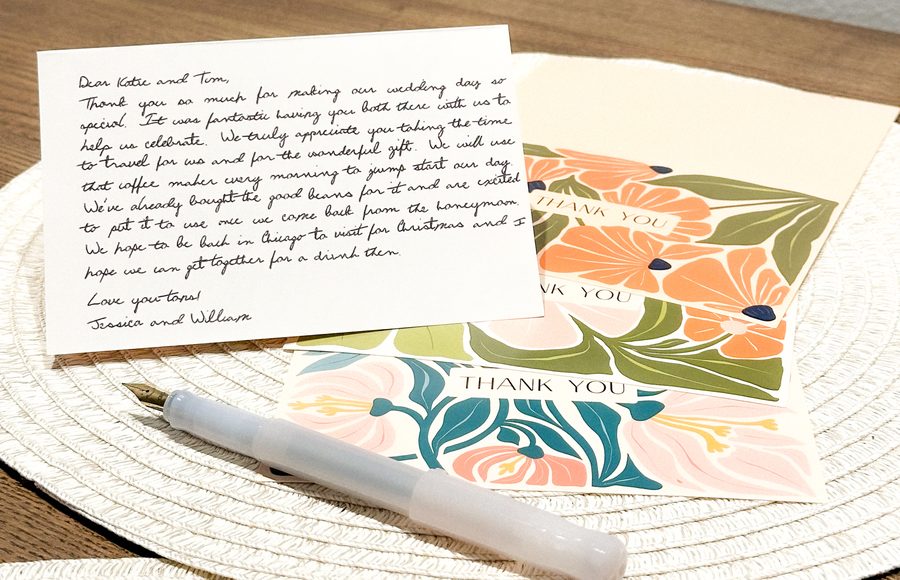 Dear Katie and Tim,
Thank you so much for making our wedding day so
special. It was fantastic having you both there with us to
help us celebrate. We truly appreciate you taking the time
to travel for us and for the wonderful gift. We will use
that coffee maker every morning to jump start our day.
We've already bought the good beans for it and are excited
to put it to use once we come back from the honeymoon.
We hope to be back in Chicago to visit for Christmas and I
hope we can get together for a drink then.
Love you tons!
Jessica and William
THANK YOU
NK YOU
THANK YOU